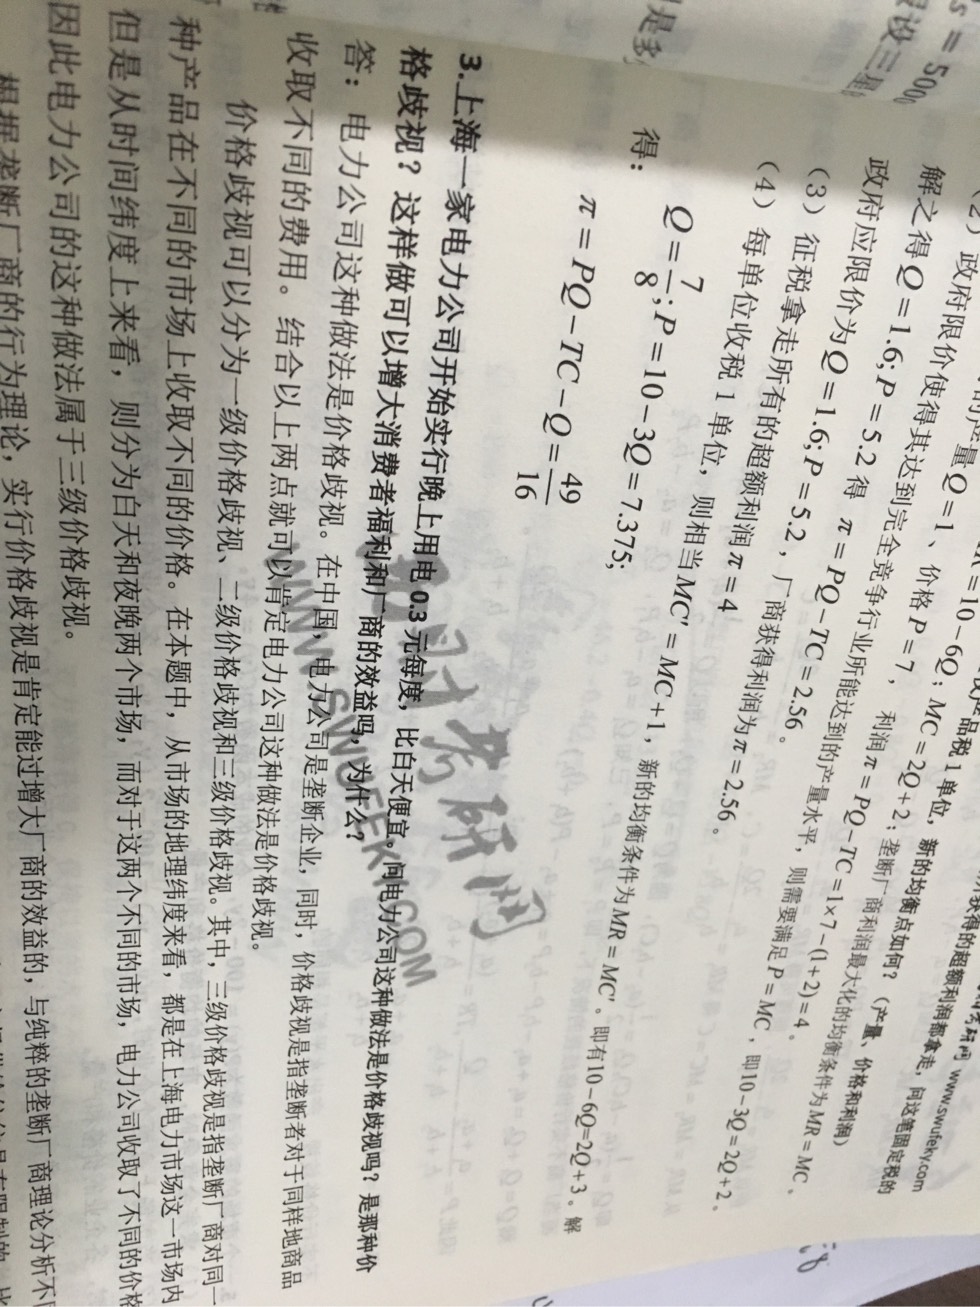 www.swufeky.com
获得的超额利润都拿走，问这笔固定税的
品税1单位，新的均衡点如何？（产量、价格和利润）
=10-6Q；MC=2Q+2；垄断厂商利润最大化的均衡条件为MR=MC，
解之得Q=1.6；P=5.2得 π=PQ-TC=2.56
的产量Q=1、价格P=7，利润π=PQ-TC=1×7-(1+2)=4。
（2）政府限价使得其达到完全竞争行业所能达到的产量水平，则需要满足P=MC，即10-3Q=2Q+2，
政府应限价为Q=1.6；P=5.2，厂商获得利润为π=2.56。
（3）征税拿走所有的超额利润π=4
（4）每单位收税1单位，则相当MC'=MC+1，新的均衡条件为MR=MC'。即有10-6Q=2Q+3。解
得：
Q=7/8；P=10-3Q=7.375；
π=PQ-TC-Q=49/16
3.上海一家电力公司开始实行晚上用电0.3元每度，比白天便宜。问电力公司这种做法是价格歧视吗？是那种价
格歧视？这样做可以增大消费者福利和厂商的效益吗，为什么？
答：电力公司这种做法是价格歧视。在中国，电力公司是垄断企业，同时，价格歧视是指垄断者对于同样地商品
收取不同的费用。结合以上两点就可以肯定电力公司这种做法是价格歧视。
价格歧视可以分为一级价格歧视、二级价格歧视和三级价格歧视。其中，三级价格歧视是指垄断厂商对同一
种产品在不同的市场上收取不同的价格。在本题中，从市场的地理纬度来看，都是在上海电力市场这一市场内
但是从时间纬度上来看，则分为白天和夜晚两个市场，而对于这两个不同的市场，电力公司收取了不同的价格
因此电力公司的这种做法属于三级价格歧视。
根据垄断厂商的行为理论，实行价格歧视是肯定能过增大厂商的效益的，与纯粹的垄断厂商理论分析不同
考研网
WWW.SWUFEKY.COM